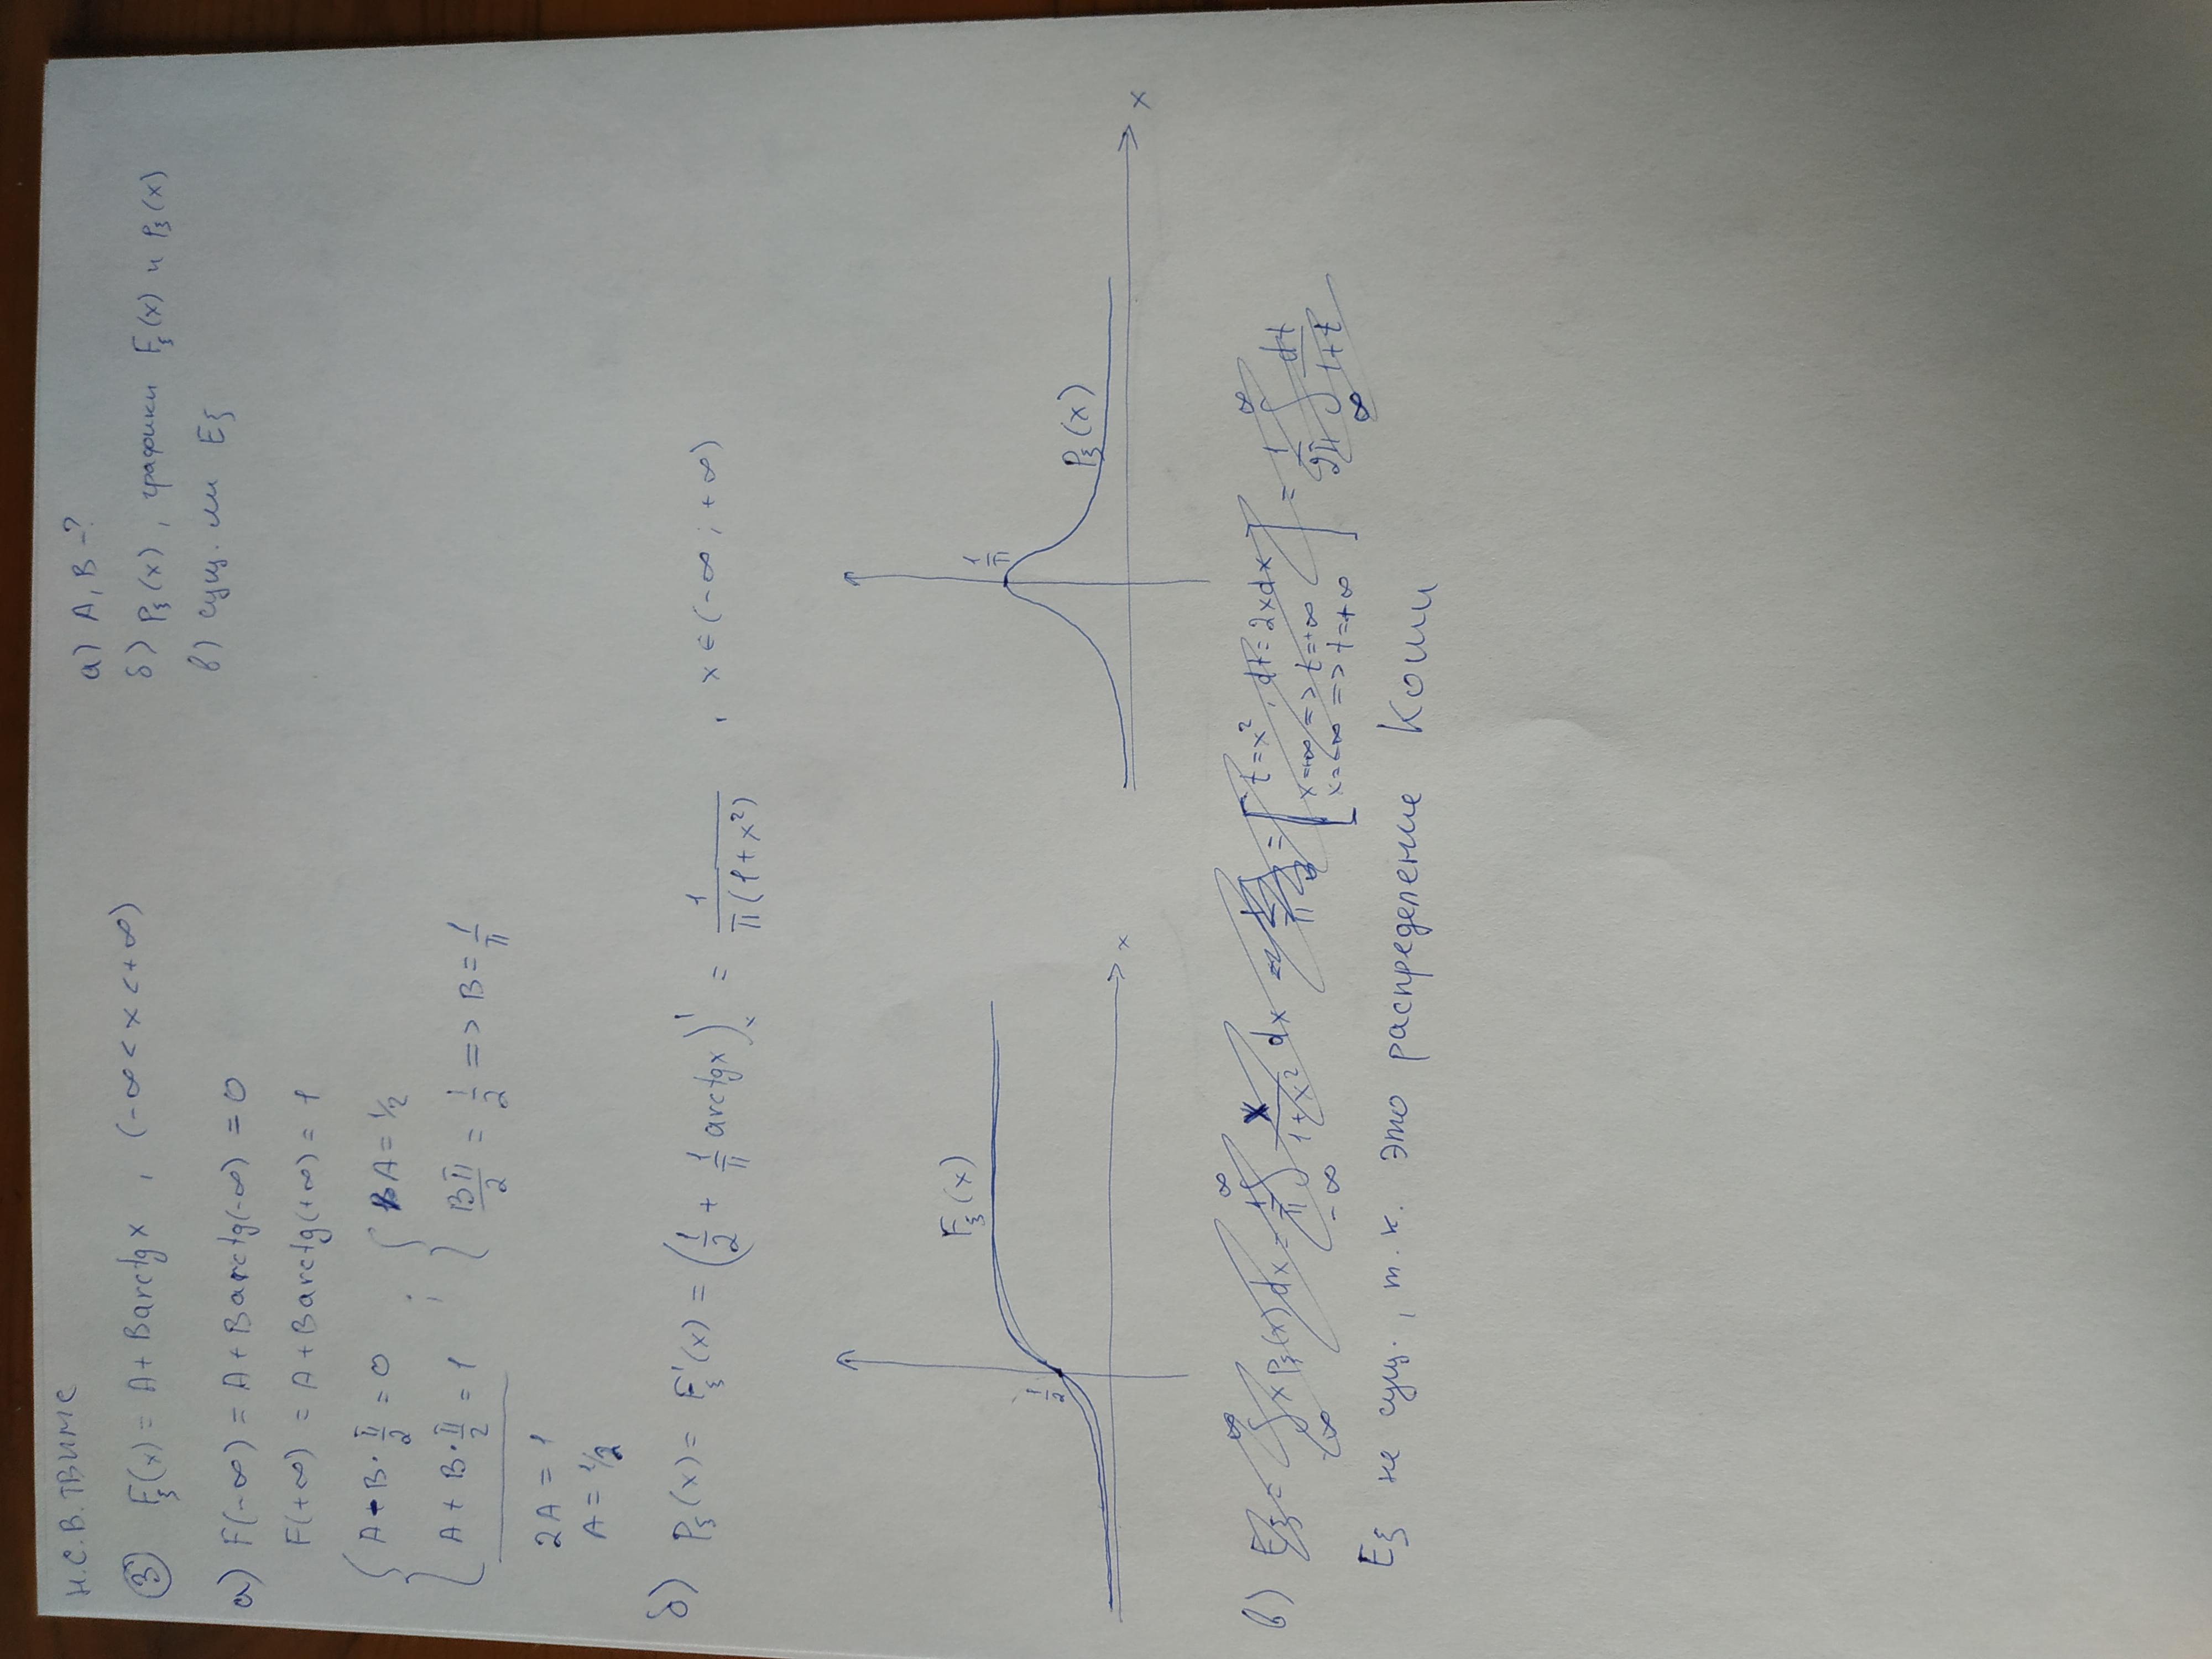 Н.С.В. ТВИМС
а) A, B -?
б) Pξ(x), графики Fξ(x) и Pξ(x)
в) сущ. ли Eξ
③ Fξ(x) = A + B arctg x , (-∞ < x < +∞)
а) F(-∞) = A + B arctg(-∞) = 0
F(+∞) = A + B arctg(+∞) = 1
{ A - B · π/2 = 0 ; { A = 1/2
A + B · π/2 = 1 Bπ/2 = 1/2 => B = 1/π
2A = 1
A = 1/2
б) Pξ(x) = F'ξ(x) = (1/2 + 1/π arctg x)'x = 1/(π(1+x²)) , x ∈ (-∞; +∞)
Fξ(x)
1/2
x
1/π
Pξ(x)
x
в) Eξ = ∫_{-∞}^{∞} x pξ(x) dx = 1/π ∫_{-∞}^{∞} x/(1+x²) dx = [ t = x², dt = 2xdx
x=+∞ => t=+∞
x=-∞ => t=+∞ ] = 1/2π ∫_{∞}^{∞} dt/(1+t)
Eξ не сущ., т.к. это распределение Коши